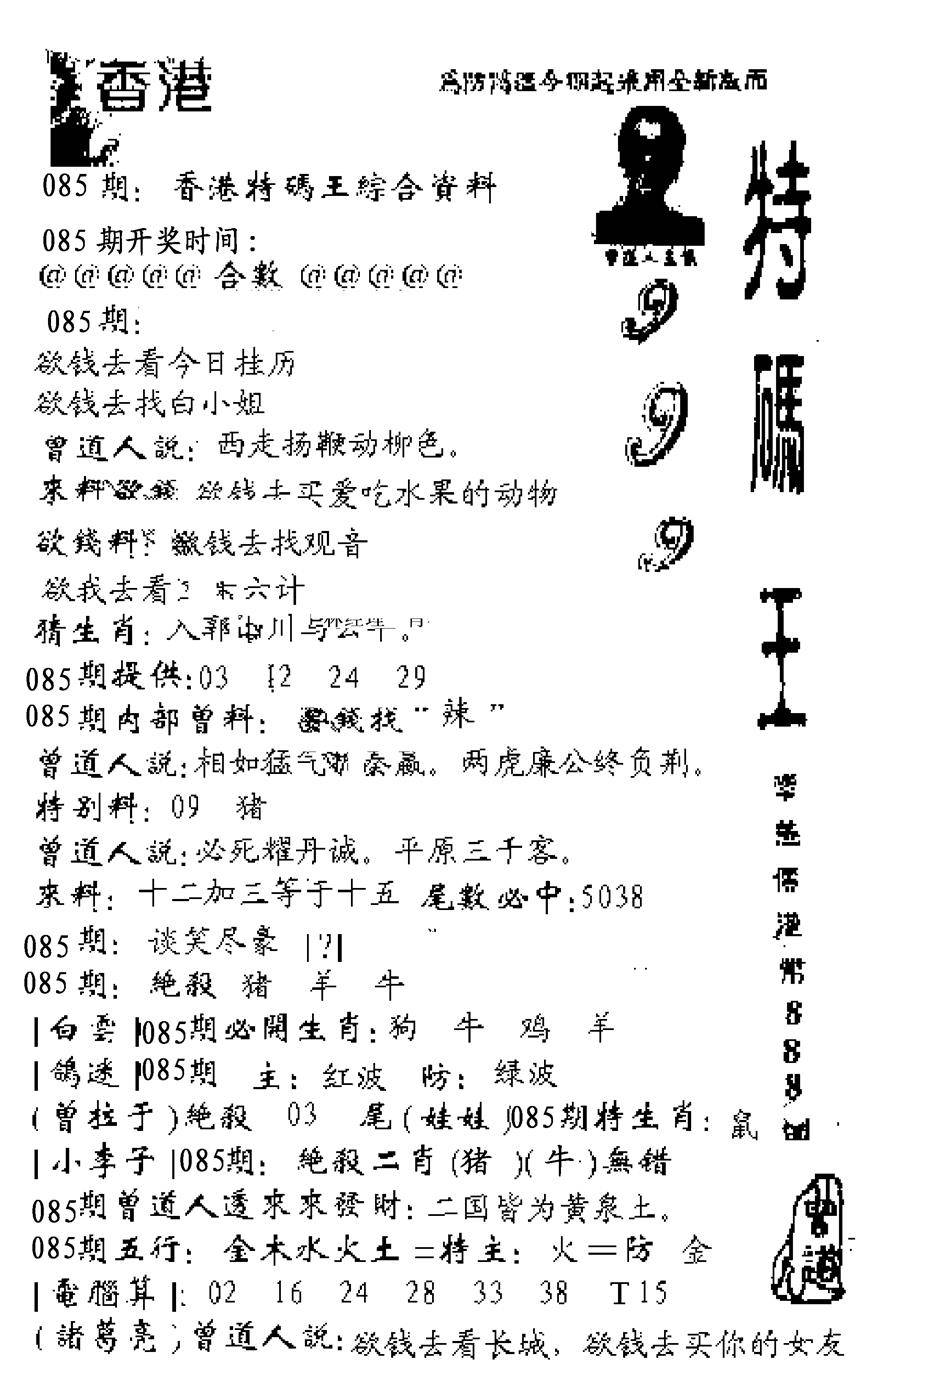 香港
085期：香港特碼王綜合資料
085期开奖时间：
@@@@@ 合數 @@@@@
085期：
欲钱去看今日挂历
欲钱去找白小姐
曾道人説：西走扬鞭动柳色。
來料 欲钱去买爱吃水果的动物
欲錢料： 钱去找观音
欲我去看 六计
猜生肖：入郭 川与
085期提供:03 12 24 29
085期内部曾料： 錢找“辣”
曾道人説:相如猛气 秦赢。两虎廉公终负荆。
特别料：09 猪
曾道人説:必死耀丹诚。平原三千客。
來料：十二加三等于十五 尾數必中:5038
085期：谈笑尽豪 |?|
085期：絶殺 猪 羊 牛
|白雲|085期必開生肖:狗 牛 鸡 羊
|鴿迷|085期 主：红波 防：绿波
(曾拉于)絶殺 03 尾(娃娃)085期特生肖：鼠
|小李子|085期：絶殺二肖(猪)(牛)無错
085期曾道人透來來發財:二国皆为黄泉土。
085期五行：金木水火土=特主：火=防 金
|電腦算|: 02 16 24 28 33 38 T15
(諸葛亮)曾道人説:欲钱去看长城，欲钱去买你的女友
特碼王
999
港幣888
曾道